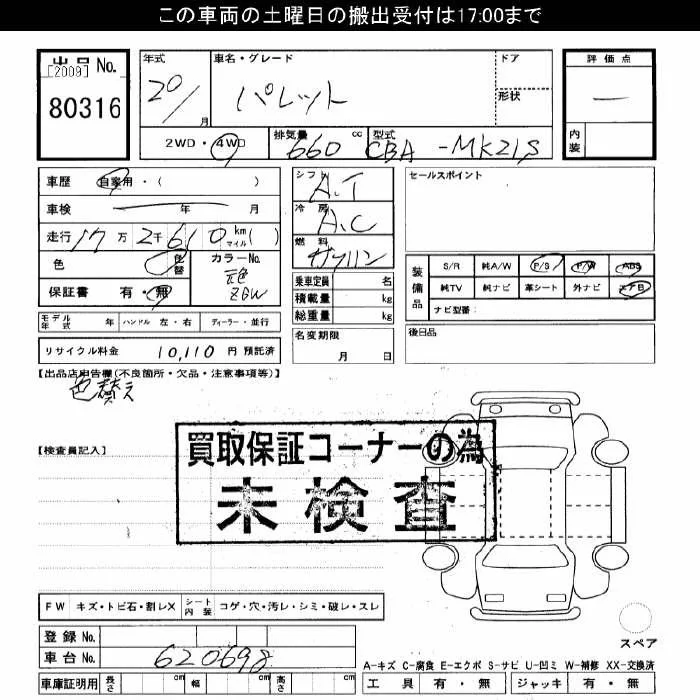 この車両の土曜日の搬出受付は17:00まで
出品 No.
[2009]
80316
年式 20/ 月
車名・グレード パレット
ドア
形状
評価点 —
内装
2WD・4WD
排気量 660 cc
型式 CBA-MK21S
車歴 自家用・( )
車検 年 月
走行 17万2千610 km マイル( )
色 色替
カラーNo. 元色 ZGW
保証書 有・無
シフト A.T
冷房 A.C
燃料 ガソリン
乗車定員 名
積載量 kg
総重量 kg
セールスポイント
装備品
S/R 純A/W P/S P/W ABS
純TV 純ナビ 革シート 外ナビ エアB
ナビ型番:
モデル年式 年 ハンドル 左・右 ディーラー・並行
名変期限 月 日
後日品
リサイクル料金 10,110 円 預託済
【出品店申告欄(不良箇所・欠品・注意事項等)】
色替え
【検査員記入】
買取保証コーナーの為
未検査
FW キズ・トビ石・割レX シート内装 コゲ・穴・汚レ・シミ・破レ・スレ
登録 No.
車台 No. 620698
車庫証明用 長さ cm 幅 cm 高さ cm
スペア
A-キズ C-腐食 E-エクボ S-サビ U-凹ミ W-補修 XX-交換済
工具 有・無 ジャッキ 有・無